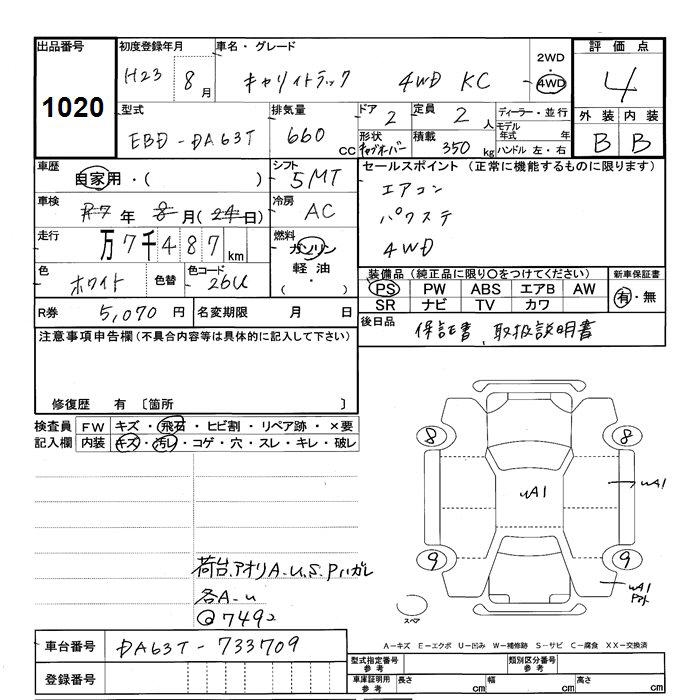 出品番号
1020
初度登録年月
H23 8月
車名・グレード
キャリイトラック 4WD KC
2WD
4WD
評価点
4
型式
EBD-DA63T
排気量
660 CC
ドア 2
形状
定員 2 人
積載 350 kg
ディーラー・並行
モデル年式 年
ハンドル 左・右
外装 内装
B B
車歴
自家用・( )
シフト
5MT
セールスポイント (正常に機能するものに限ります)
エアコン
パワステ
4WD
車検
R7年 8月(24日)
冷房
AC
走行
万7千487km
燃料
ガソリン
軽油
(・)
色
ホワイト
色替
色コード
26U
装備品(純正品に限り○をつけてください)
PS PW ABS エアB AW
SR ナビ TV カワ
新車保証書
有・無
R券 5,070 円
名変期限 月 日
後日品
保証書、取扱説明書
注意事項申告欄(不具合内容等は具体的に記入して下さい)
修復歴 有 〔箇所 〕
検査員記入欄
FW キズ・飛石・ヒビ割・リペア跡・×要
内装 キズ・汚レ・コゲ・穴・スレ・キレ・破レ
8 8
uA1
uA1
9 9
uA1
スペア
荷台アオリA.U.S.Pハガレ
各A-u
@7492
車台番号 DA63T-733709
登録番号
A-キズ E-エクボ U-凹み W-補修跡 S-サビ C-腐食 XX-交換済
型式指定番号 参考
類別区分番号 参考
車庫証明用 参考
長さ cm 幅 cm 高さ cm